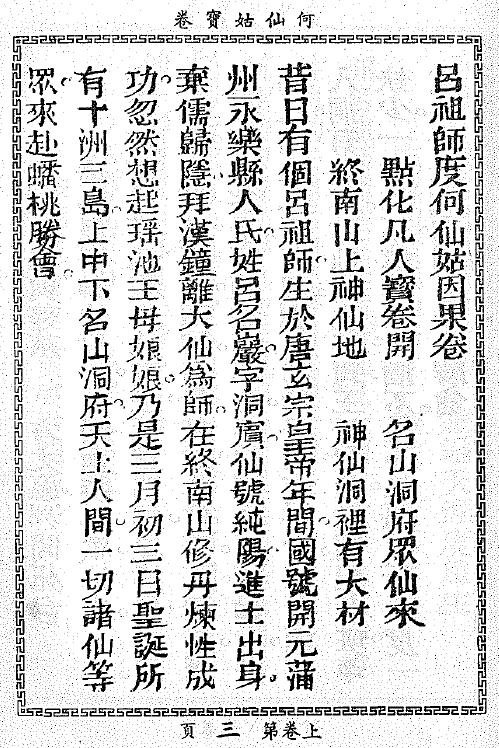 何仙姑寶卷
呂祖師度何仙姑因果卷
點化凡人寶卷開　名山洞府眾仙來
終南山上神仙地　神仙洞裡有大材
昔日有個呂祖師。生於唐玄宗皇帝年間。國號開元蒲
州永樂縣人氏。姓呂名巖。字洞賓。仙號純陽。進士出身。
棄儒歸隱。拜漢鐘離大仙爲師。在終南山修丹煉性成
功。忽然想起瑶池王母娘娘。乃是三月初三日聖誕。所
有十洲三島。上中下名山洞府。天上人間。一切諸仙等
眾。來赴蟠桃勝會。
上卷第三頁